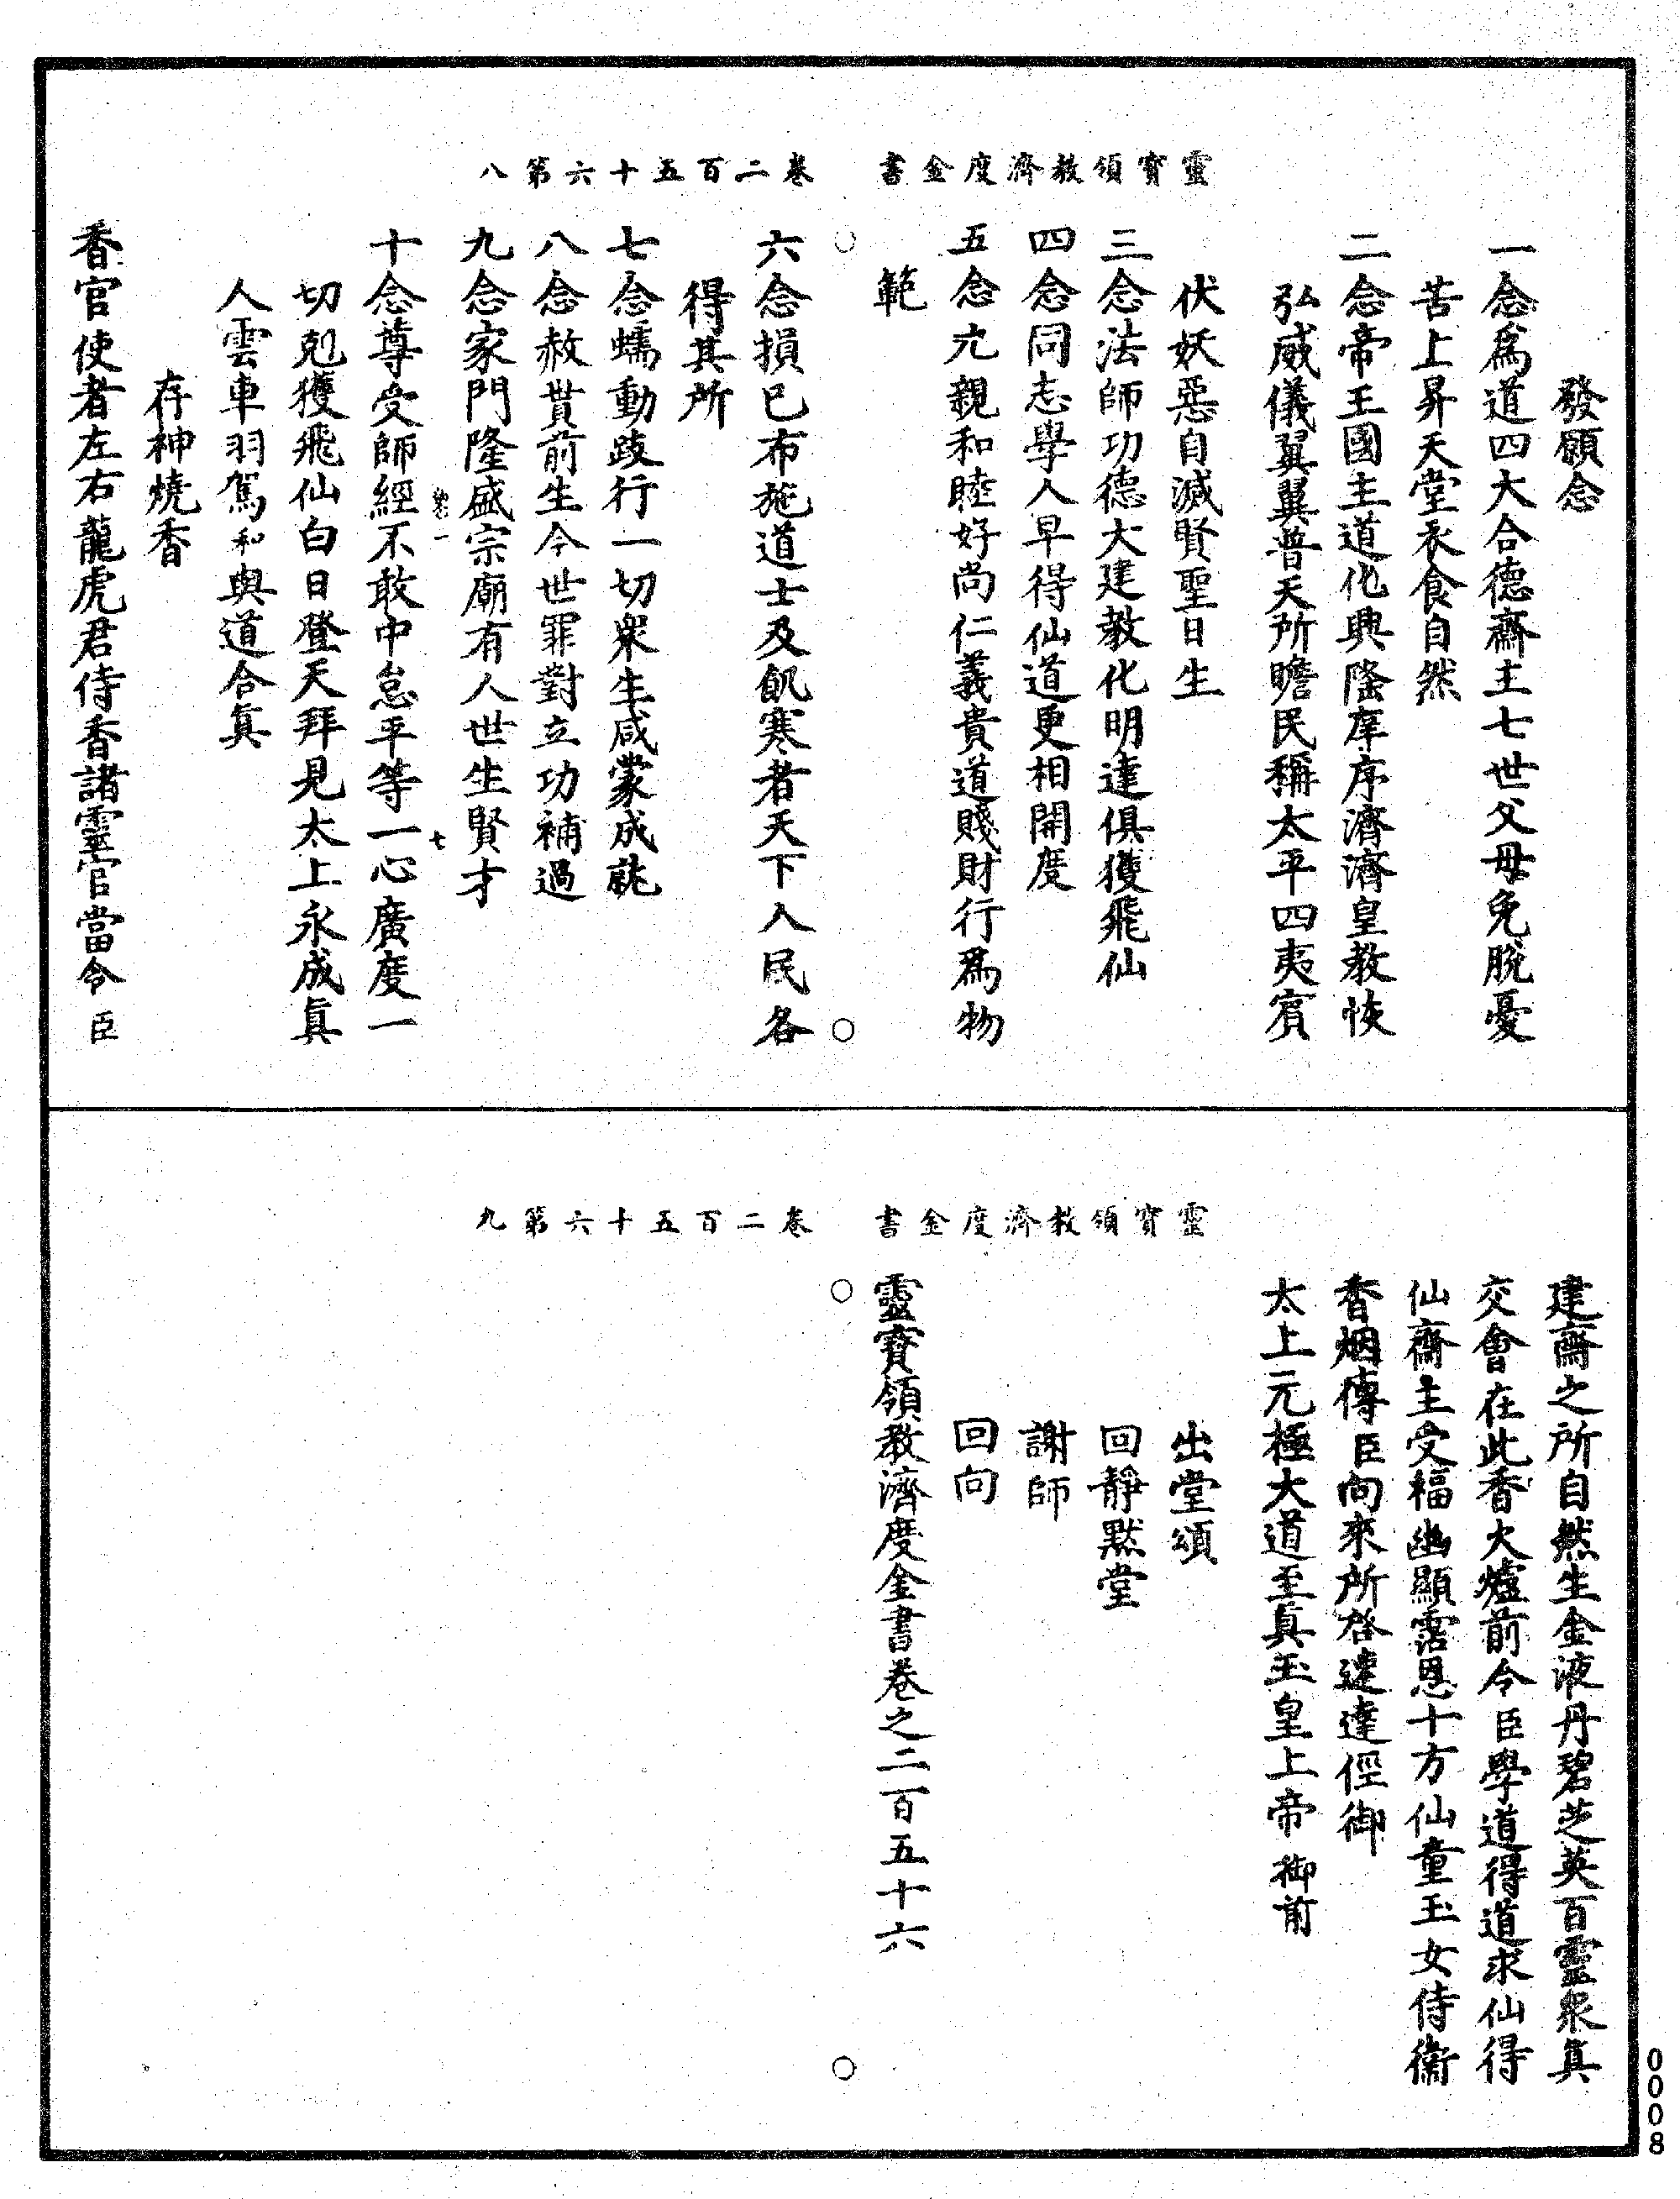 靈寶領教濟度金書　卷二百五十六第八
發願念
一念爲道四大合德齋主七世父母免脫憂
苦上昇天堂衣食自然
二念帝王國主道化興隆庠序濟濟皇教恢
弘威儀翼翼普天所瞻民稱太平四夷賓
伏妖惡自滅賢聖日生
三念法師功德大建教化明達俱獲飛仙
四念同志學人早得仙道更相開度
五念九親和睦好尚仁義貴道賤財行爲物
範
六念損己布施道士及飢寒者天下人民各
得其所
七念蠕動跂行一切衆生咸蒙成就
八念赦貰前生今世罪對立功補過
九念家門隆盛宗廟有人世生賢才
七
十念尊受師經不敢中怠平等一心廣度一
切剋獲飛仙白日登天拜見太上永成眞
人雲車羽駕和與道合眞
存神燒香
香官使者左右龍虎君侍香諸靈官當令臣
靈寶領教濟度金書　卷二百五十六第九
建齋之所自然生金液丹碧芝英百靈衆眞
交會在此香火爐前令臣學道得道求仙得
仙齋主受福幽顯霑恩十方仙童玉女侍衞
香烟傳臣向來所啓速達徑御
太上元極大道至眞玉皇上帝　御前
出堂頌
回靜默堂
謝師
回向
靈寶領教濟度金書卷之二百五十六
0008